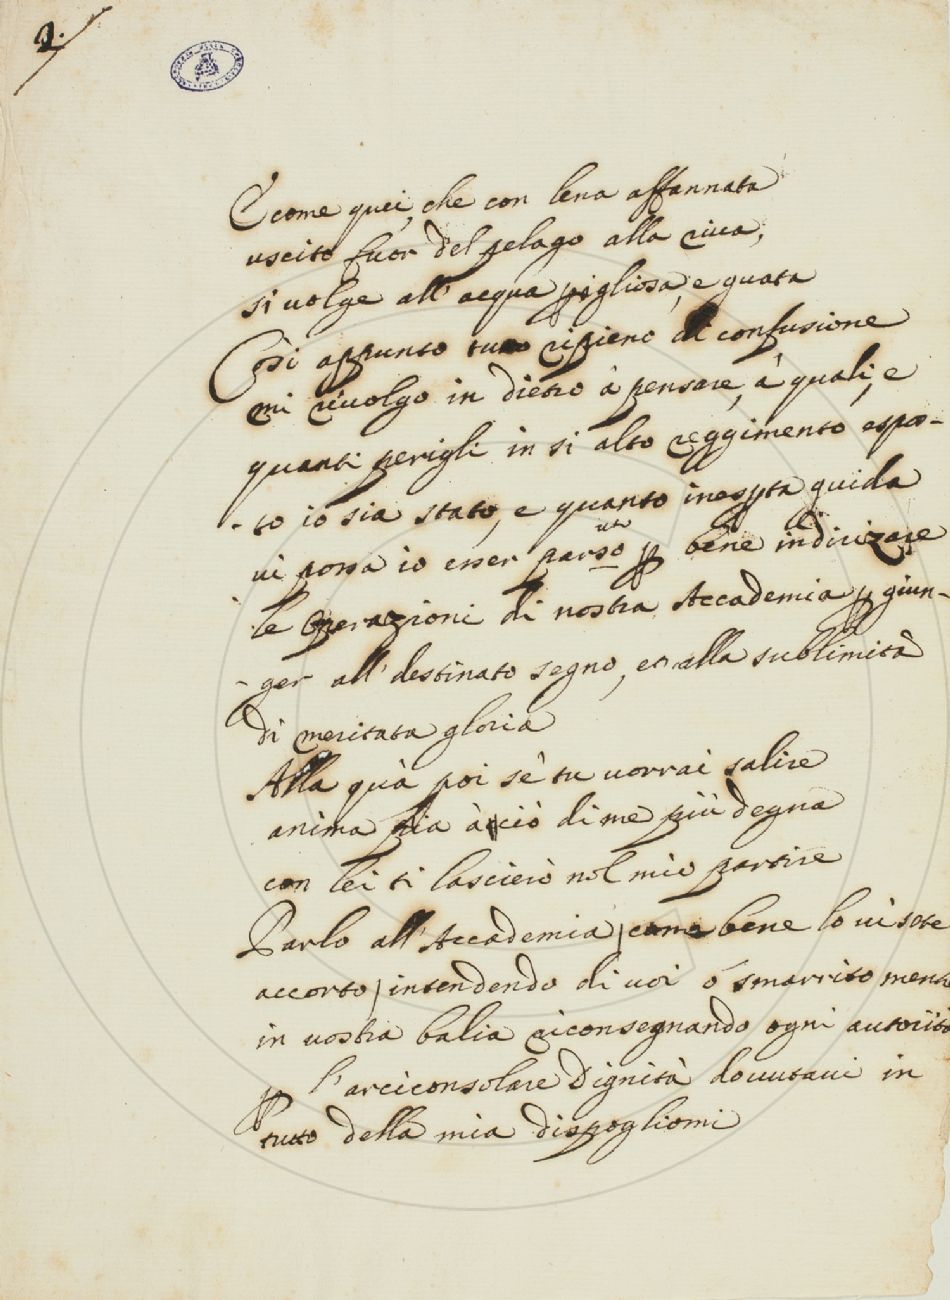 2.
E come quei, che con lena affannata
uscito fuor del pelago alla riva,
si volge all' acqua perigliosa, e guata
Così appunto tutto ripieno di confusione
mi rivolgo in dietro à pensare, à quali, e
quanti perigli in si alto reggimento espos-
-to io sia stato, e quanto inespta guida
vi possa io esser parso uto p bene indirizare
le Operazioni di nostra Accademia p giun-
-ger all' destinato segno, et alla sublimità
di meritata gloria
Alla quà poi sè tu vorrai salire
anima fia à ciò di me più degna
con lei ti lascierò nel mio partire
Parlo all' Accademia, come bene lo vi sete
accorto, intendendo di voi ò smarrito mentre
in vostra balia riconsegnando ogni autorità
p l'arciconsolare Dignità dovutavi in
tutto della mia dispogliomi